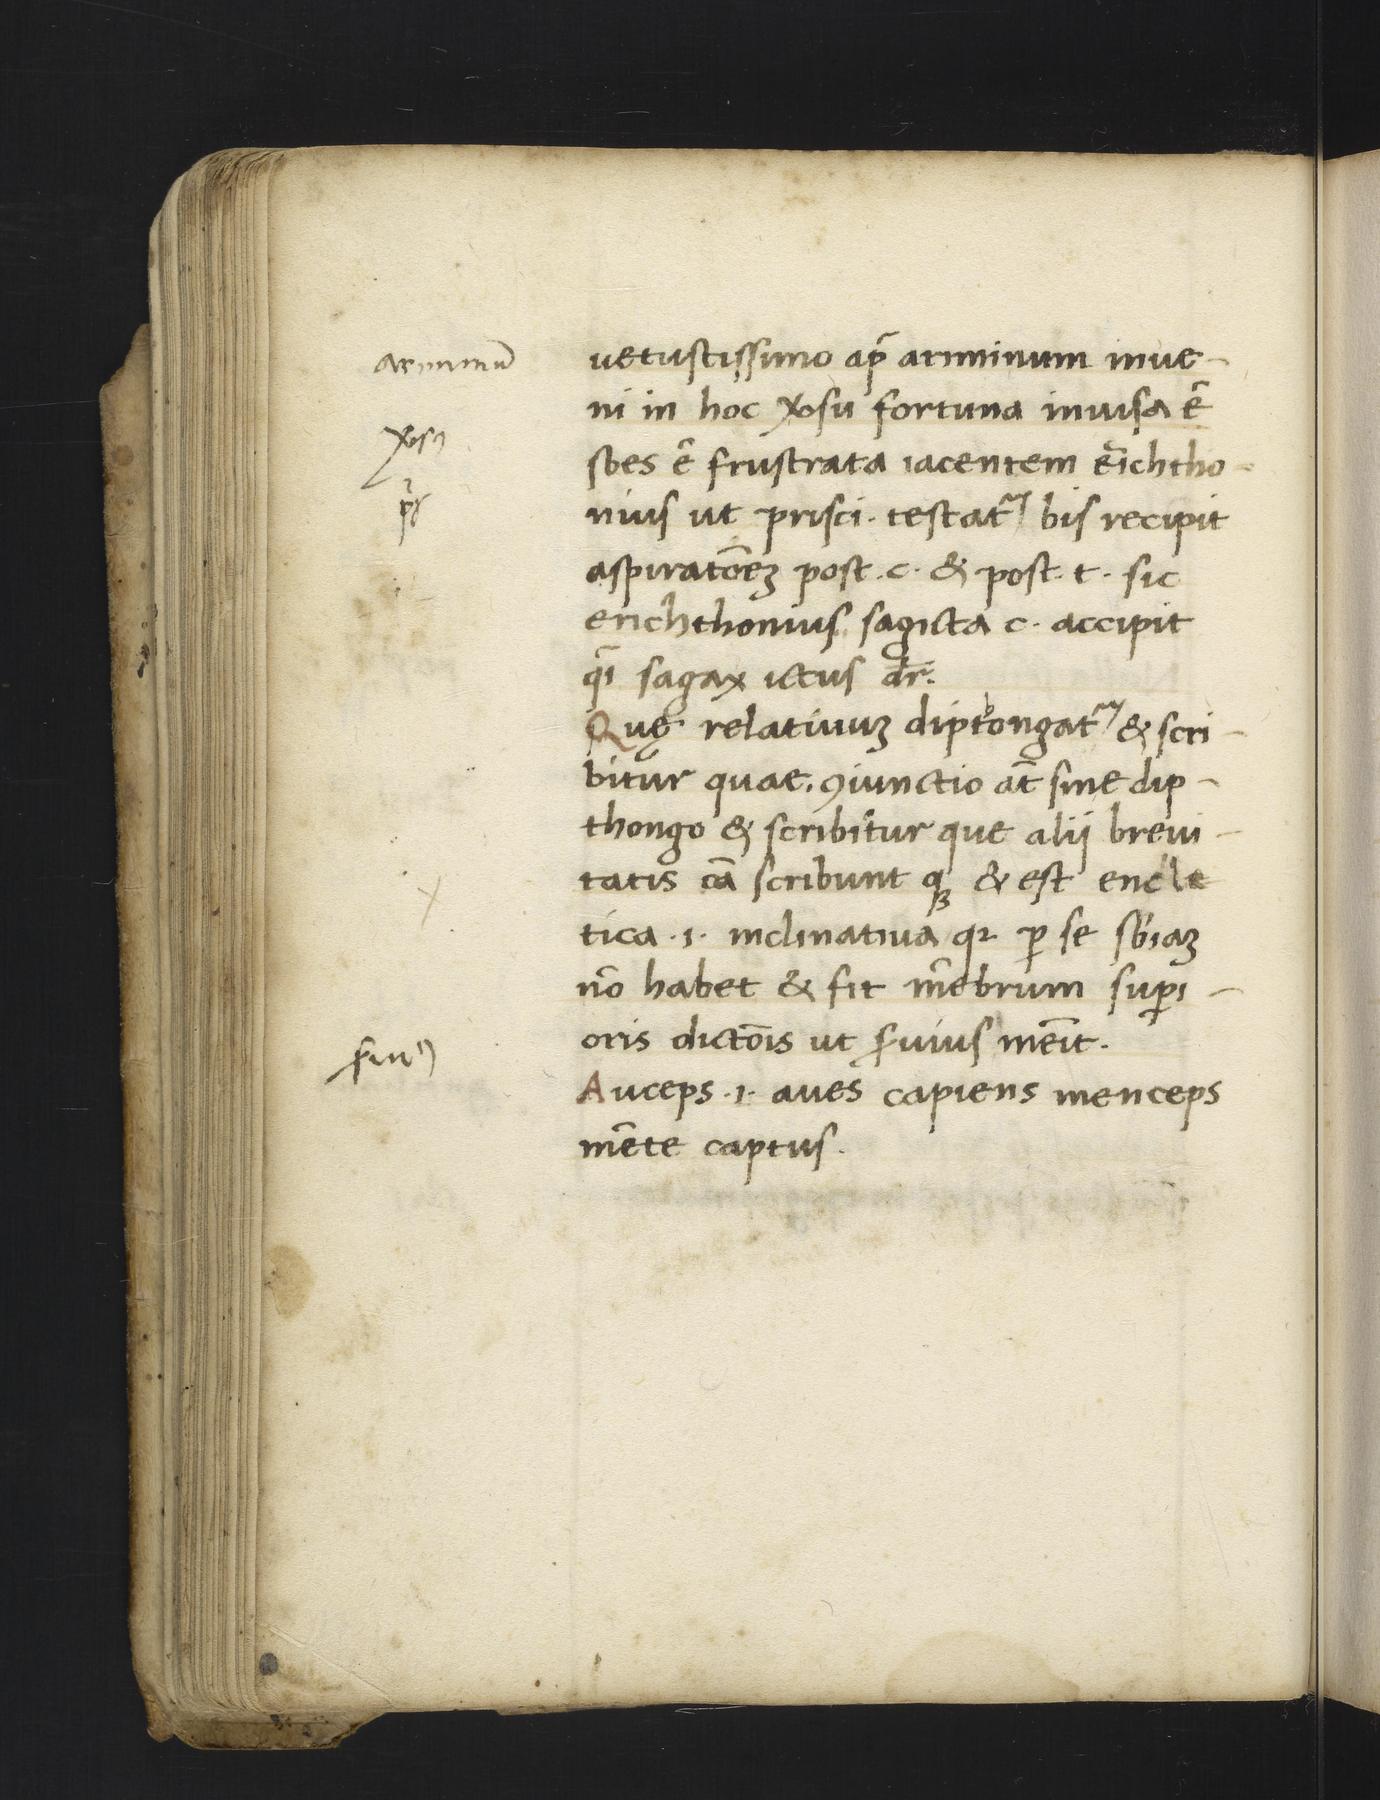 ariminũ
vetustissimo ap̃ ariminum inue-
ni in hoc xosu fortuna inuisa ẽ
xosu
sbes ẽ frustrata iacentem ẽichtho-
pr̃
nius ut prisci. testat᷑ bis recipit
aspiratõeʒ post .c. & post. t. sic
erichthonius sagicta c. accipit
q̃i sagax ictus dr̃.
Quę relatiuuʒ diptongat᷑ & scri-
bitur quae. ꝯiunctio at̃ sine dip-
thongo & scribitur que alij breui-
tatis cã scribunt qʒ & est encle
tica .i. inclinatiua qr ꝑ se sb̃iaʒ
nõ habet & fit mẽbrum suꝑi-
oris dictõis ut s̃uius mẽit.
s̃uiꝰ
Auceps .i. aues capiens menceps
mẽte captus.